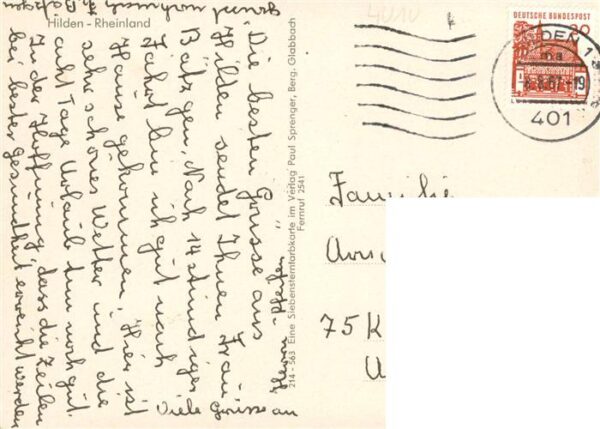 Hilden - Rheinland
Die besten Grüsse aus
Hilden sendet Ihnen Frau
Bätzgen. Nach 14 stündiger
Fahrt bin ich gut nach
Hause gekommen, Hier ist
sehr schönes Wetter und die
acht Tage Urlaub tun noch gut.
In der Hoffnung, dass die Zeilen
bei bester Gesundheit erreicht werden
nochmals
Viele Grüsse an
Herrn Pfeifen
214 - 563 Eine Siebensternfarbkarte im Verlag Paul Sprenger, Berg. Gladbach
Fernruf 2541
4010
DEUTSCHE BUNDESPOST
DEN 1
19
401
Familie
75 K